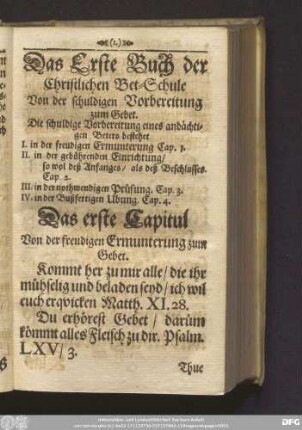 (1.)
Das Erste Buch der
Christlichen Bet-Schule
Von der schuldigen Vorbereitung
zum Gebet.
Die schuldige Vorbereitung eines andächti-
gen Beters bestehet
I. in der freudigen Ermunterung Cap. 1.
II. in der gebührenden Einrichtung/
so wol deß Anfanges/ als deß Beschlusses.
Cap. 2.
III. in der nothwendigen Prüfung. Cap. 3.
IV. in der Bußfertigen Ubung. Cap. 4.
Das erste Capitul
Von der freudigen Ermunterung zum
Gebet.
Kommt her zu mir alle/ die ihr
mühselig und beladen seyd/ ich wil
euch erqvicken Matth. XI. 28.
Du erhörest Gebet/ darüm
kömmt alles Fleisch zu dir. Psalm.
LXV/ 3.
Thue